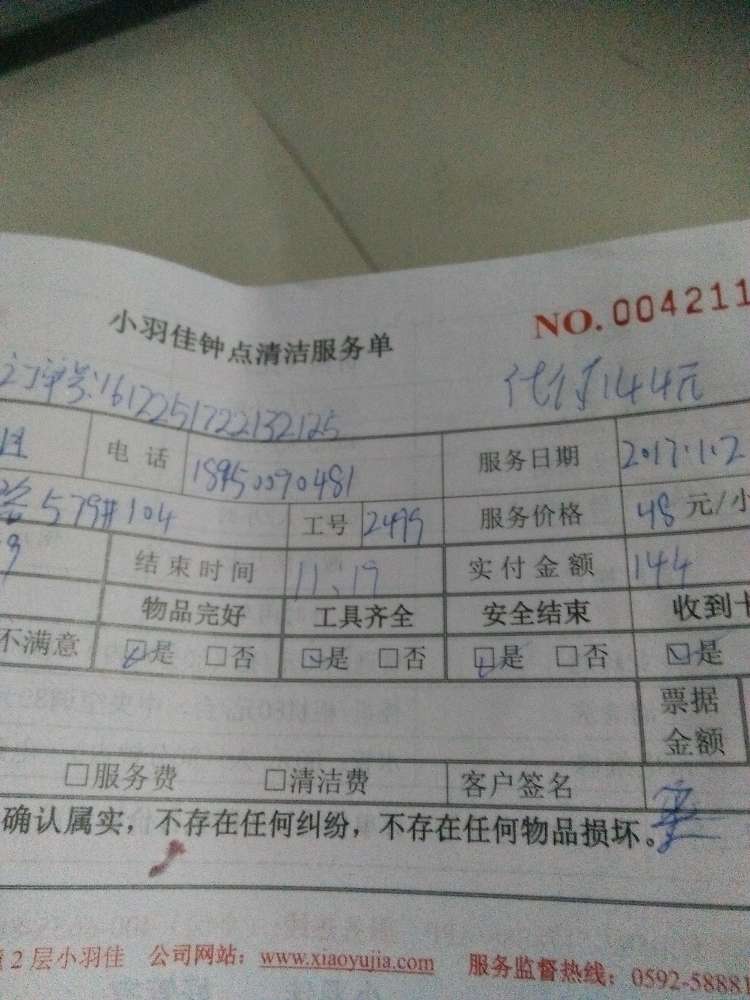 小羽佳钟点清洁服务单 NO. 004211
订单号:1612251722132125 代付144元
电话 18950090481 服务日期 2017.1.2
579#104 工号 2499 服务价格 48 元/小
结束时间 11.19 实付金额 144
物品完好 工具齐全 安全结束 收到
不满意 ☑是 □否 ☑是 □否 ☑是 □否 ☑是
票据
金额
□服务费 □清洁费 客户签名
确认属实，不存在任何纠纷，不存在任何物品损坏。
2层小羽佳 公司网站：www.xiaoyujia.com 服务监督热线：0592-58881